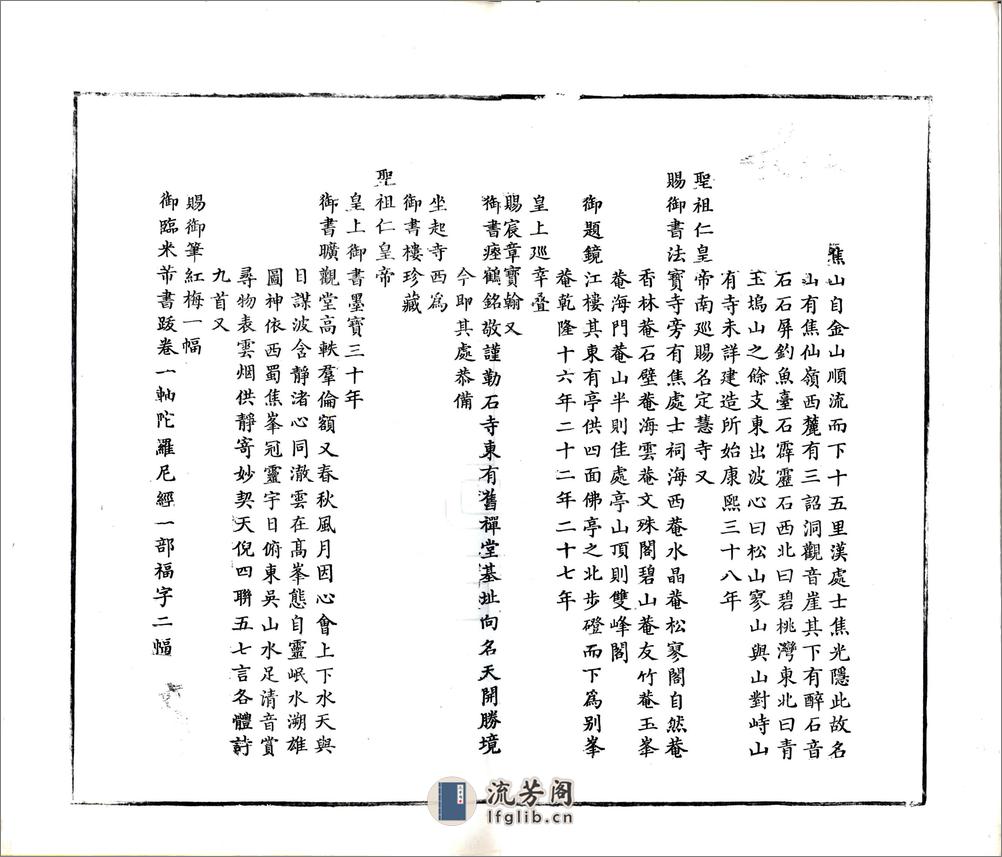 焦山自金山順流而下十五里漢處士焦光隱此故名
山有焦仙嶺西麓有三詔洞觀音崖其下有醉石音
石石屏釣魚臺石霹靂石西北曰碧桃灣東北曰青
玉塢山之餘支東出波心曰松山寥山與山對峙山
有寺未詳建造所始康熙三十八年
聖祖仁皇帝南巡賜名定慧寺又
賜御書法寶寺旁有焦處士祠海西菴水晶菴松寥閣自然菴
香林菴石壁菴海雲菴文殊閣碧山菴友竹菴玉峯
菴海門菴山半則佳處亭山頂則雙峰閣
御題鏡江樓其東有亭供四面佛亭之北步磴而下為别峯
菴乾隆十六年二十二年二十七年
皇上巡幸疊
賜宸章寶翰又
御書瘞鶴銘敬謹勒石寺東有舊禪堂基址向名天開勝境
今即其處恭備
坐起寺西為
御書樓珍藏
聖祖仁皇帝
皇上御書墨寶三十年
御書曠觀堂高軼羣倫額又春秋風月因心會上下水天與
日謀波含靜渚心同澈雲在髙峯態自靈岷水溯雄
圖神依西蜀焦峯冠靈宇日俯東吳山水足清音賞
尋物表雲烟供靜寄妙契天倪四聯五七言各體詩
九首又
賜御筆紅梅一幅
御臨米芾書跋卷一軸陀羅尼經一部福字二幅
流芳阁
lfglib.cn